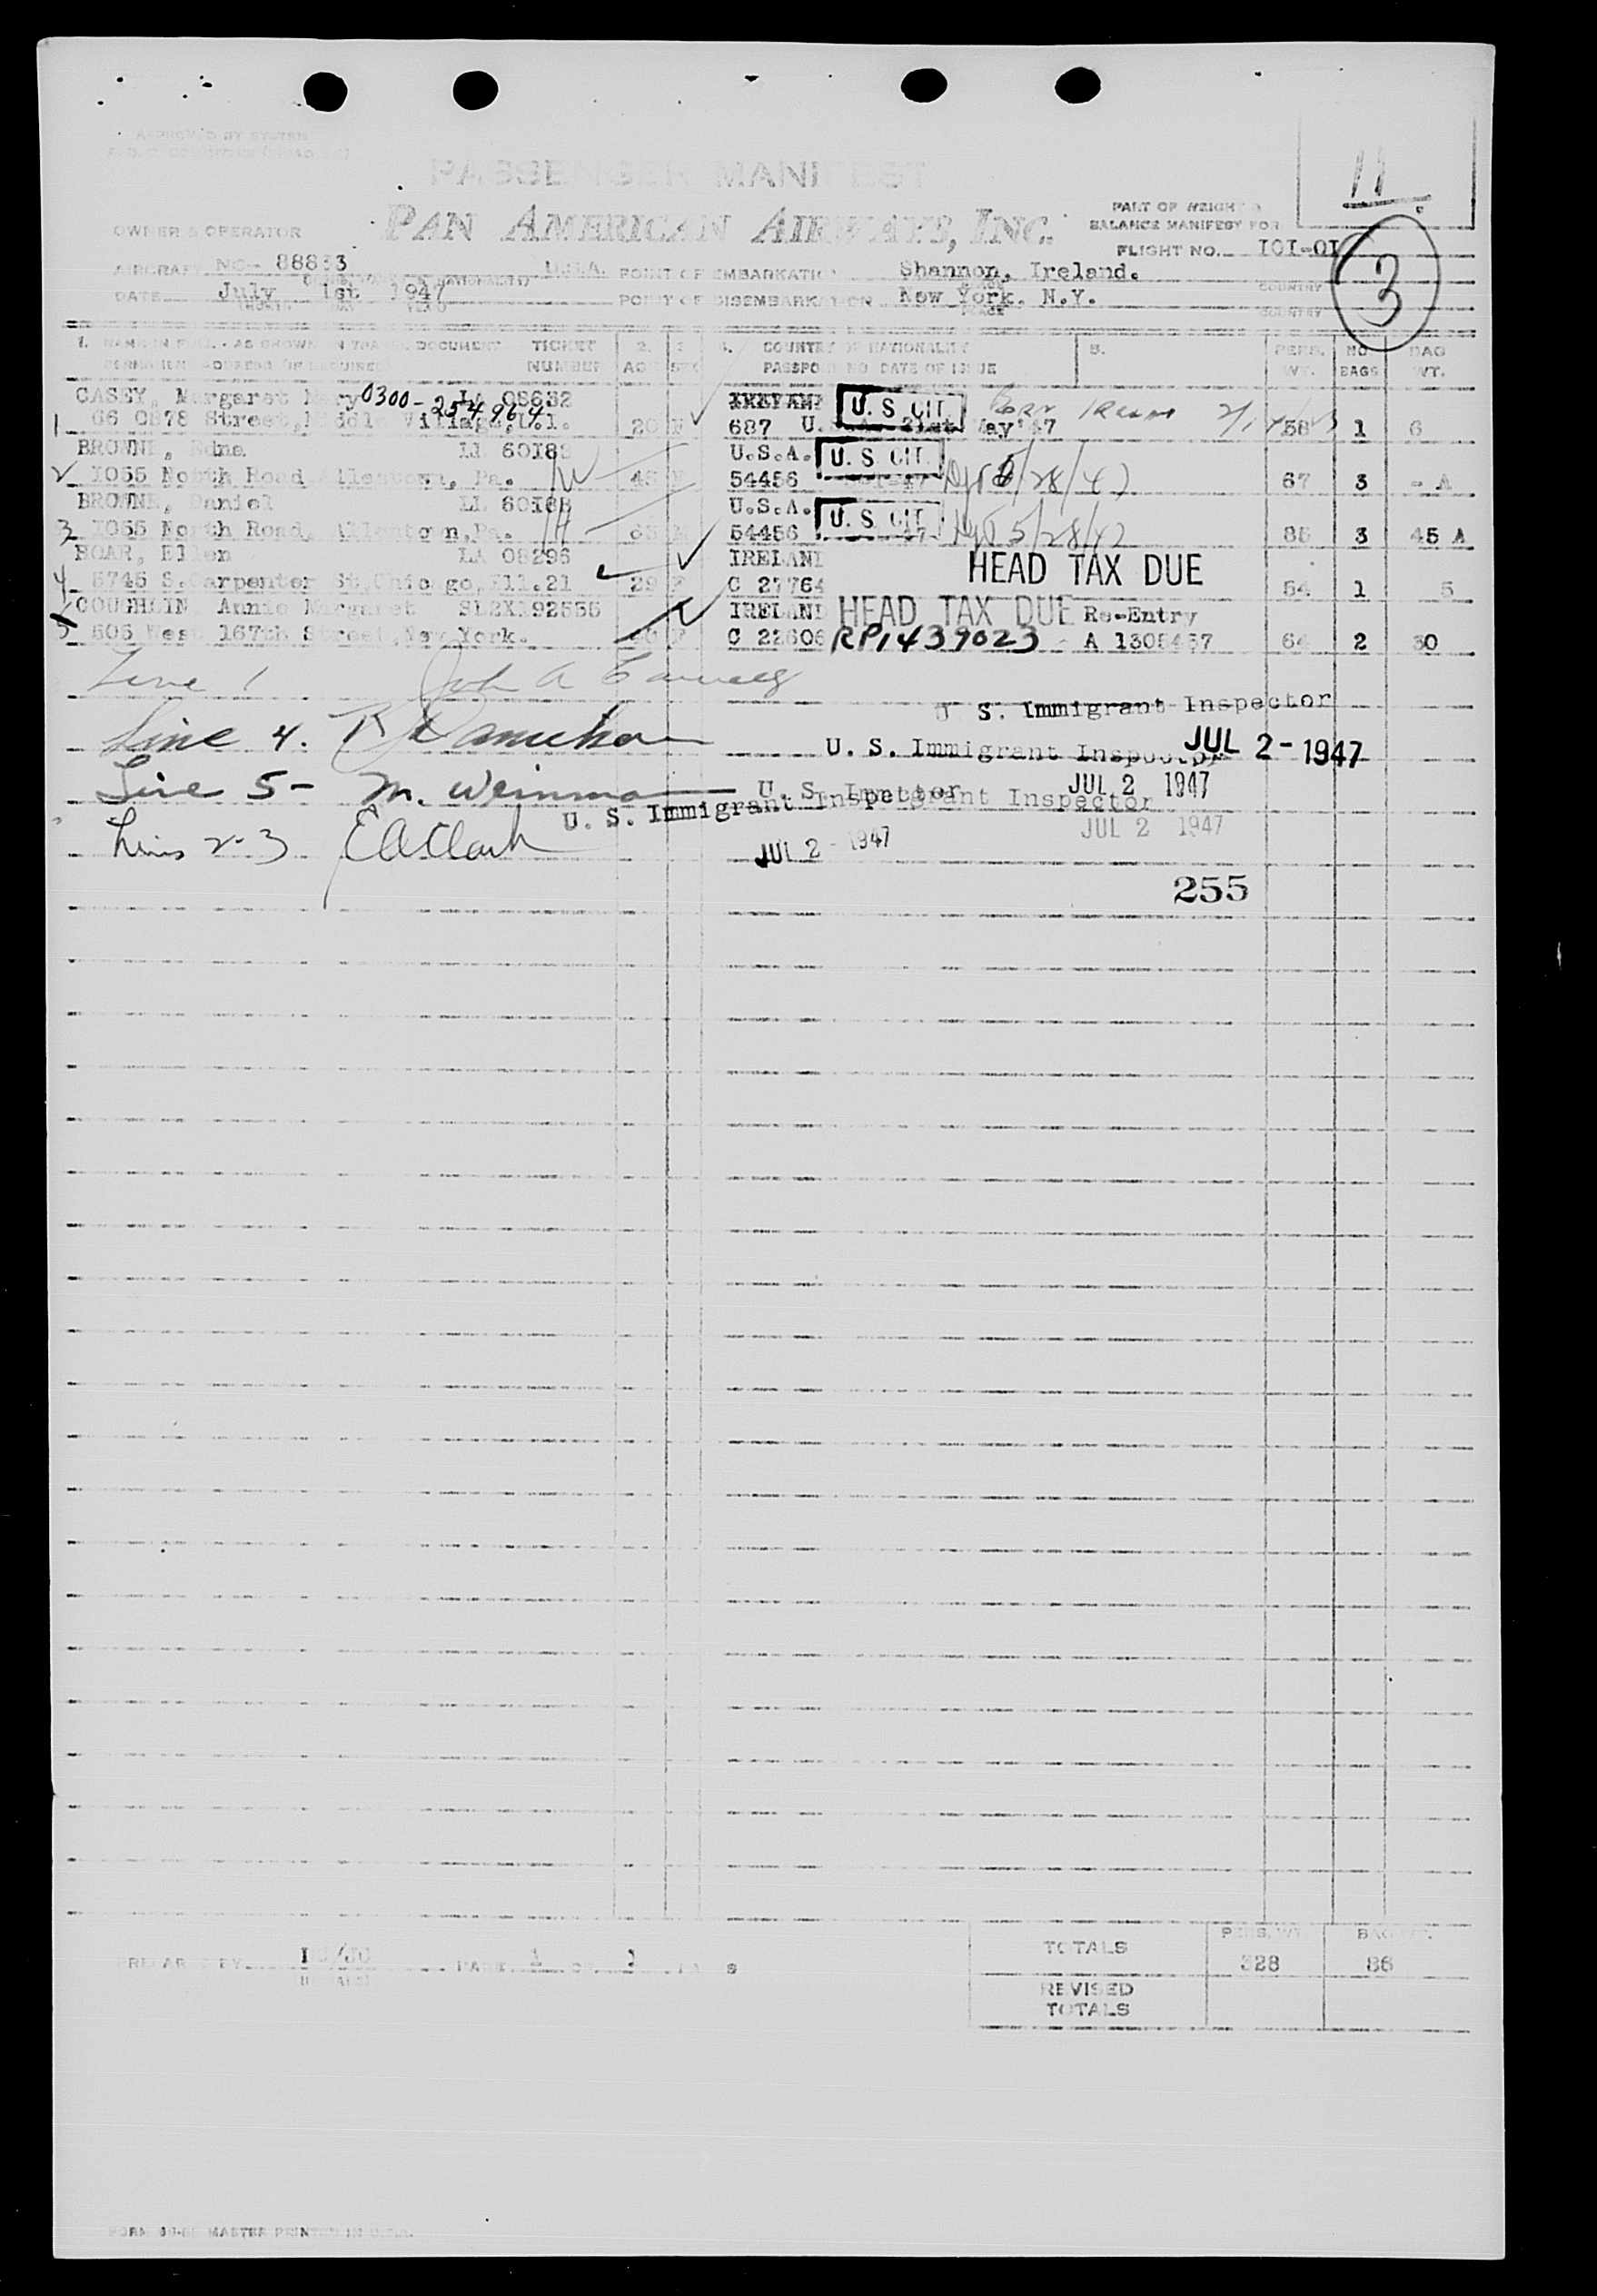 11
APPROVED BY SYSTEM
PASSENGER MANIFEST
PART OF WEIGHT &
OWNER & OPERATOR PAN AMERICAN AIRWAYS, INC. BALANCE MANIFEST FOR
FLIGHT NO. IOI-OI
3
AIRCRAFT NC- 88833 U.S.A. POINT OF EMBARKATION Shannon, Ireland.
DATE July 1st 1947 POINT OF DISEMBARKATION New York, N.Y.
PLACE COUNTRY
1. NAME IN FULL - AS SHOWN IN TRAVEL DOCUMENT TICKET 2. 3. 4. COUNTRY OF NATIONALITY 5. PERS. NO. BAG
PERMANENT ADDRESS (IF REQUIRED) NUMBER AGE SEX PASSPORT NO. DATE OF ISSUE WT. BAGS WT.
CASEY, Margaret Mary 0300-254964 LA 08632 U. S. CIT.
1 66 0878 Street, Middle Village, L.I. 20 F 687 U.S.A. 21st May '47 58 1 6
BROWNE, Edna LL 60189 U.S.A. U. S. CIT.
2 1055 North Road Allentown, Pa. 54456 5/28/47 67 3 - A
BROWNE, Daniel LL 60188 U.S.A. U. S. CIT.
3 1055 North Road, Allentown, Pa. 54456 5/28/47 85 3 45 A
BOAR, Ellen LA 08296 IRELAND HEAD TAX DUE
4 5745 S. Carpenter St, Chicago, Ill. 21 29 F C 27764 54 1 5
COUGHLIN Annie Margaret SL2X192555 IRELAND HEAD TAX DUE Re-Entry
5 605 West 167th Street, New York. C 22606 RP1439023 - A 1308457 64 2 30
Line 1 John A
U. S. Immigrant Inspector
Line 4.
U. S. Immigrant Inspector JUL 2 - 1947
Line 5 - M. Weinman U. S. Immigrant Inspector JUL 2 1947
U. S. Immigrant Inspector
Lines 2-3 E A Clark JUL 2 - 1947 JUL 2 1947
255
PREPARED BY PAGE 1 OF
TOTALS PERS. WT. 328 BAG WT. 86
REVISED
TOTALS
MASTER PRINTED IN U.S.A.